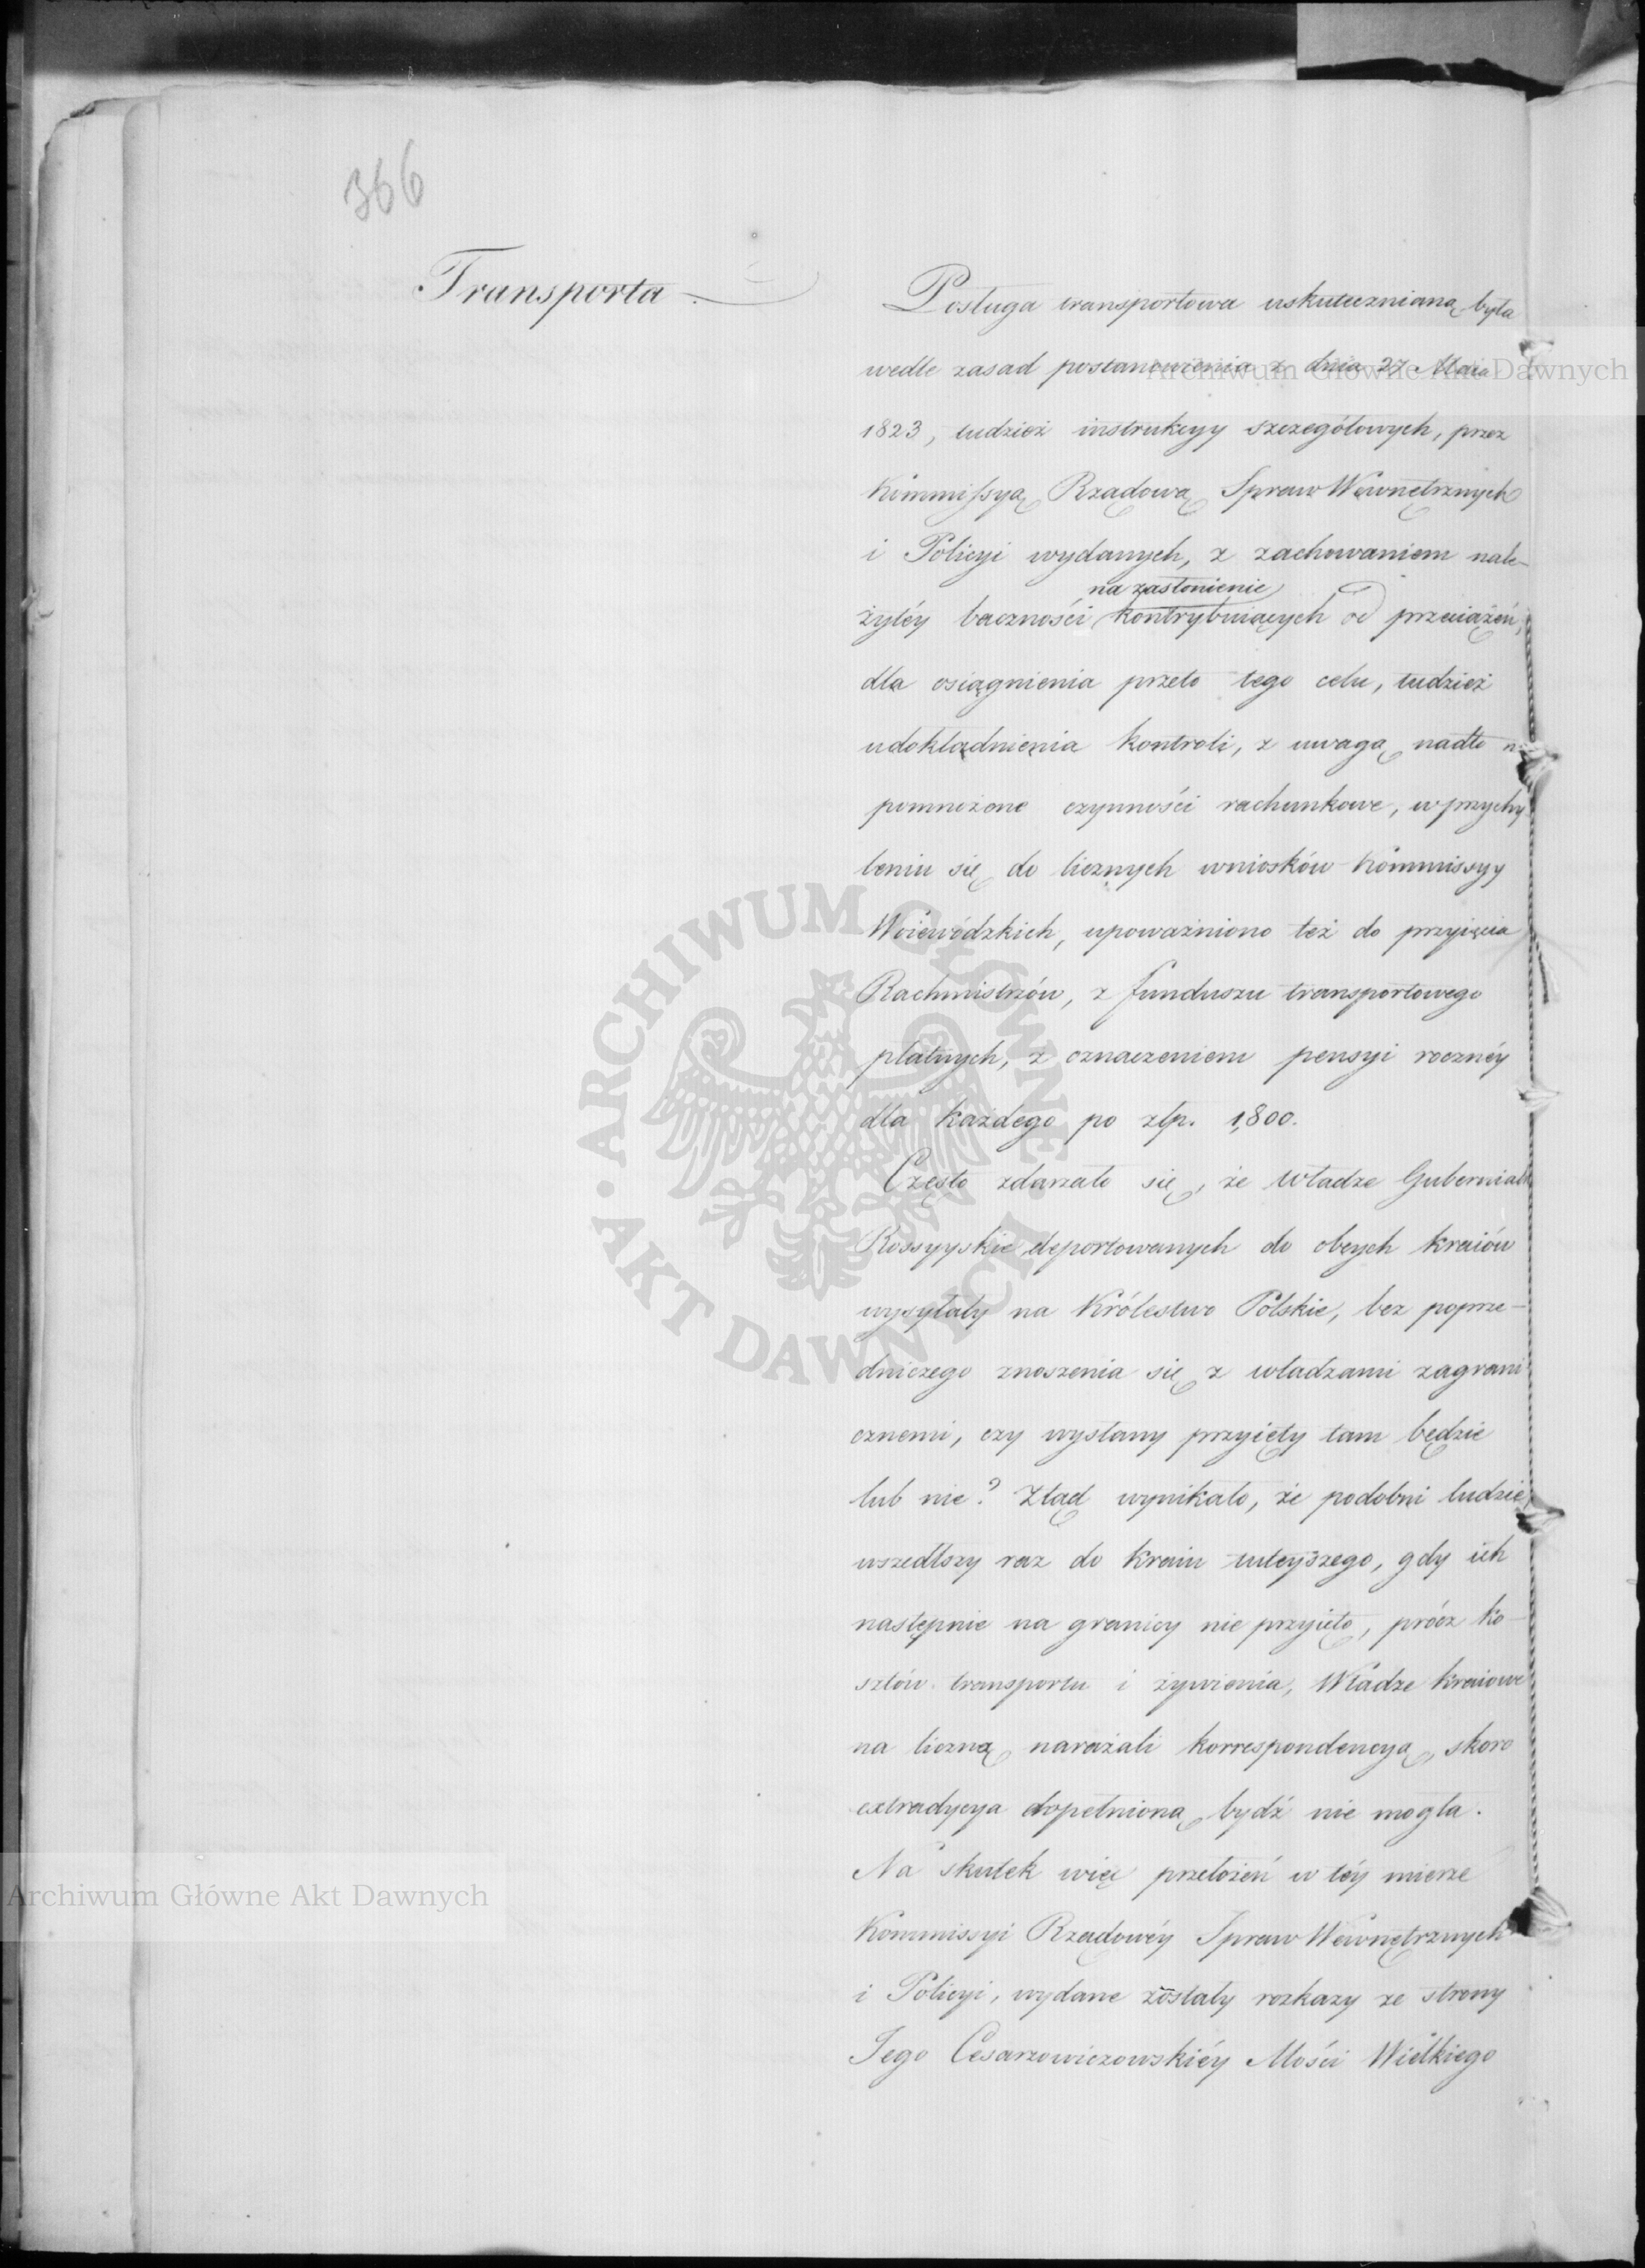 366
Transporta
Posługa transportowa uskuteczniana była
wedle zasad postanowienia z dnia 27 Maia
1823, tudzież instrukcyy szczegółowych, przez
Kommissyą Rządową Spraw Wewnętrznych
i Policyi wydanych, z zachowaniem nale-
na zasłonienie
żytéy baczności kontrybuiących od przeciążeń,
dla osiągnienia przeto tego celu, tudzież
udokładnienia kontroli, z uwagą nadto na
pomnożone czynności rachunkowe, w przychy
leniu się do licznych wniosków Kommissyy
Woiewódzkich, upoważniono też do przyięcia
Rachmistrzów, z funduszu transportowego
płatnych, z oznaczeniem pensyi rocznéy
dla każdego po złp. 1,800.
Często zdarzało się, że Władze Gubernialne
Rossyyskie deportowanych do obcych kraiów
wysyłały na Królestwo Polskie, bez poprze-
dniczego znoszenia się z władzami zagrani
cznemi, czy wysłany przyięty tam będzie
lub nie? Ztąd wynikało, że podobni ludzie,
wszedłszy raz do kraiu tuteyszego, gdy ich
następnie na granicy nie przyięto, prócz ko-
sztów transportu i żywienia, Władze kraiowe
na liczną narażali korrespondencyą, skoro
extradycya dopełnioną bydź nie mogła.
Na skutek więc przełożeń w téy mierze
Kommissyi Rządowéy Spraw Wewnętrznych
i Policyi, wydane zostały rozkazy ze strony
Jego Cesarzowiczowskiéy Mości Wielkiego
Archiwum Główne Akt Dawnych
ARCHIWUM GŁÓWNE AKT DAWNYCH
Archiwum Główne Akt Dawnych